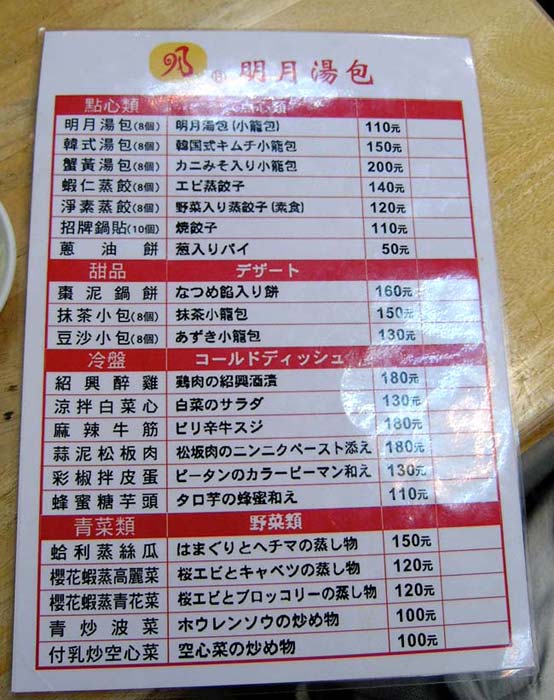 明月湯包
點心類 點心類
明月湯包(8個) 明月湯包(小籠包) 110元
韓式湯包(8個) 韓国式キムチ小籠包 150元
蟹黃湯包(8個) カニみそ入り小籠包 200元
蝦仁蒸餃(8個) エビ蒸餃子 140元
淨素蒸餃(8個) 野菜入り蒸餃子(素食) 120元
招牌鍋貼(10個) 焼餃子 110元
蔥油餅 葱入りパイ 50元
甜品 デザート
棗泥鍋餅 なつめ餡入り餅 160元
抹茶小包(8個) 抹茶小籠包 150元
豆沙小包(8個) あずき小籠包 130元
冷盤 コールドディッシュ
紹興醉雞 鶏肉の紹興酒漬 180元
涼拌白菜心 白菜のサラダ 130元
麻辣牛筋 ピリ辛牛スジ 180元
蒜泥松板肉 松坂肉のニンニクペースト添え 180元
彩椒拌皮蛋 ピータンのカラーピーマン和え 130元
蜂蜜糖芋頭 タロ芋の蜂蜜和え 110元
青菜類 野菜類
蛤利蒸絲瓜 はまぐりとヘチマの蒸し物 150元
櫻花蝦蒸高麗菜 桜エビとキャベツの蒸し物 120元
櫻花蝦蒸青花菜 桜エビとブロッコリーの蒸し物 120元
青炒波菜 ホウレンソウの炒め物 100元
付乳炒空心菜 空心菜の炒め物 100元